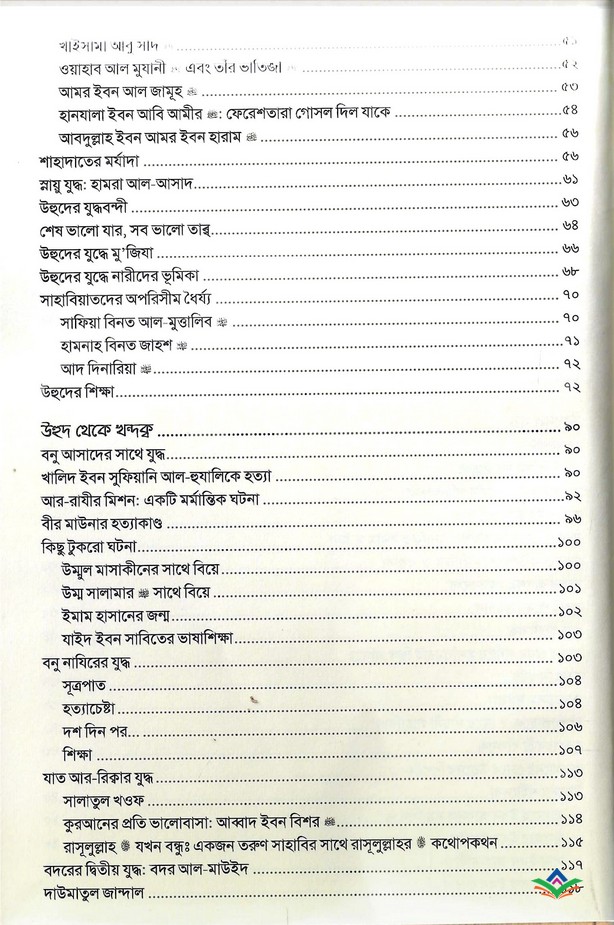 খাইসামা আবু সাদ ﷺ ........ ৫১
ওয়াহাব আল মুযানী ﷺ এবং তাঁর ভাতিজা ﷺ ........ ৫২
আমর ইবন আল জামূহ ﷺ ........ ৫৩
হানযালা ইবন আবি আমীর ﷺ: ফেরেশতারা গোসল দিল যাকে ........ ৫৪
আবদুল্লাহ ইবন আমর ইবন হারাম ﷺ ........ ৫৬
শাহাদাতের মর্যাদা ........ ৫৬
স্নায়ু যুদ্ধ: হামরা আল-আসাদ ........ ৬১
উহুদের যুদ্ধবন্দী ........ ৬৩
শেষ ভালো যার, সব ভালো তার ........ ৬৪
উহুদের যুদ্ধে মু'জিযা ........ ৬৬
উহুদের যুদ্ধে নারীদের ভূমিকা ........ ৬৮
সাহাবিয়াতদের অপরিসীম ধৈর্য্য ........ ৭০
সাফিয়া বিনত আল-মুত্তালিব ﷺ ........ ৭০
হামনাহ বিনত জাহশ ﷺ ........ ৭১
আদ দিনারিয়া ﷺ ........ ৭২
উহুদের শিক্ষা ........ ৭২
উহুদ থেকে খন্দক্ব ........ ৯০
বনু আসাদের সাথে যুদ্ধ ........ ৯০
খালিদ ইবন সুফিয়ানি আল-হুযালিকে হত্যা ........ ৯০
আর-রাযীর মিশন: একটি মর্মান্তিক ঘটনা ........ ৯২
বীর মাউনার হত্যাকাণ্ড ........ ৯৬
কিছু টুকরো ঘটনা ........ ১০০
উম্মুল মাসাকীনের সাথে বিয়ে ........ ১০০
উম্ম সালামার ﷺ সাথে বিয়ে ........ ১০১
ইমাম হাসানের জন্ম ........ ১০২
যাইদ ইবন সাবিতের ভাষাশিক্ষা ........ ১০৩
বনু নাযিরের যুদ্ধ ........ ১০৩
সূত্রপাত ........ ১০৪
হত্যাচেষ্টা ........ ১০৪
দশ দিন পর... ........ ১০৬
শিক্ষা ........ ১০৭
যাত আর-রিক্বার যুদ্ধ ........ ১১৩
সালাতুল খওফ ........ ১১৩
কুরআনের প্রতি ভালোবাসা: আব্বাদ ইবন বিশর ﷺ ........ ১১৪
রাসূলুল্লাহ ﷺ যখন বন্ধুঃ একজন তরুণ সাহাবির সাথে রাসূলুল্লাহর ﷺ কথোপকথন ........ ১১৫
বদরের দ্বিতীয় যুদ্ধ: বদর আল-মাউইদ ........ ১১৭
দাউমাতুল জান্দাল ........ ১১৮